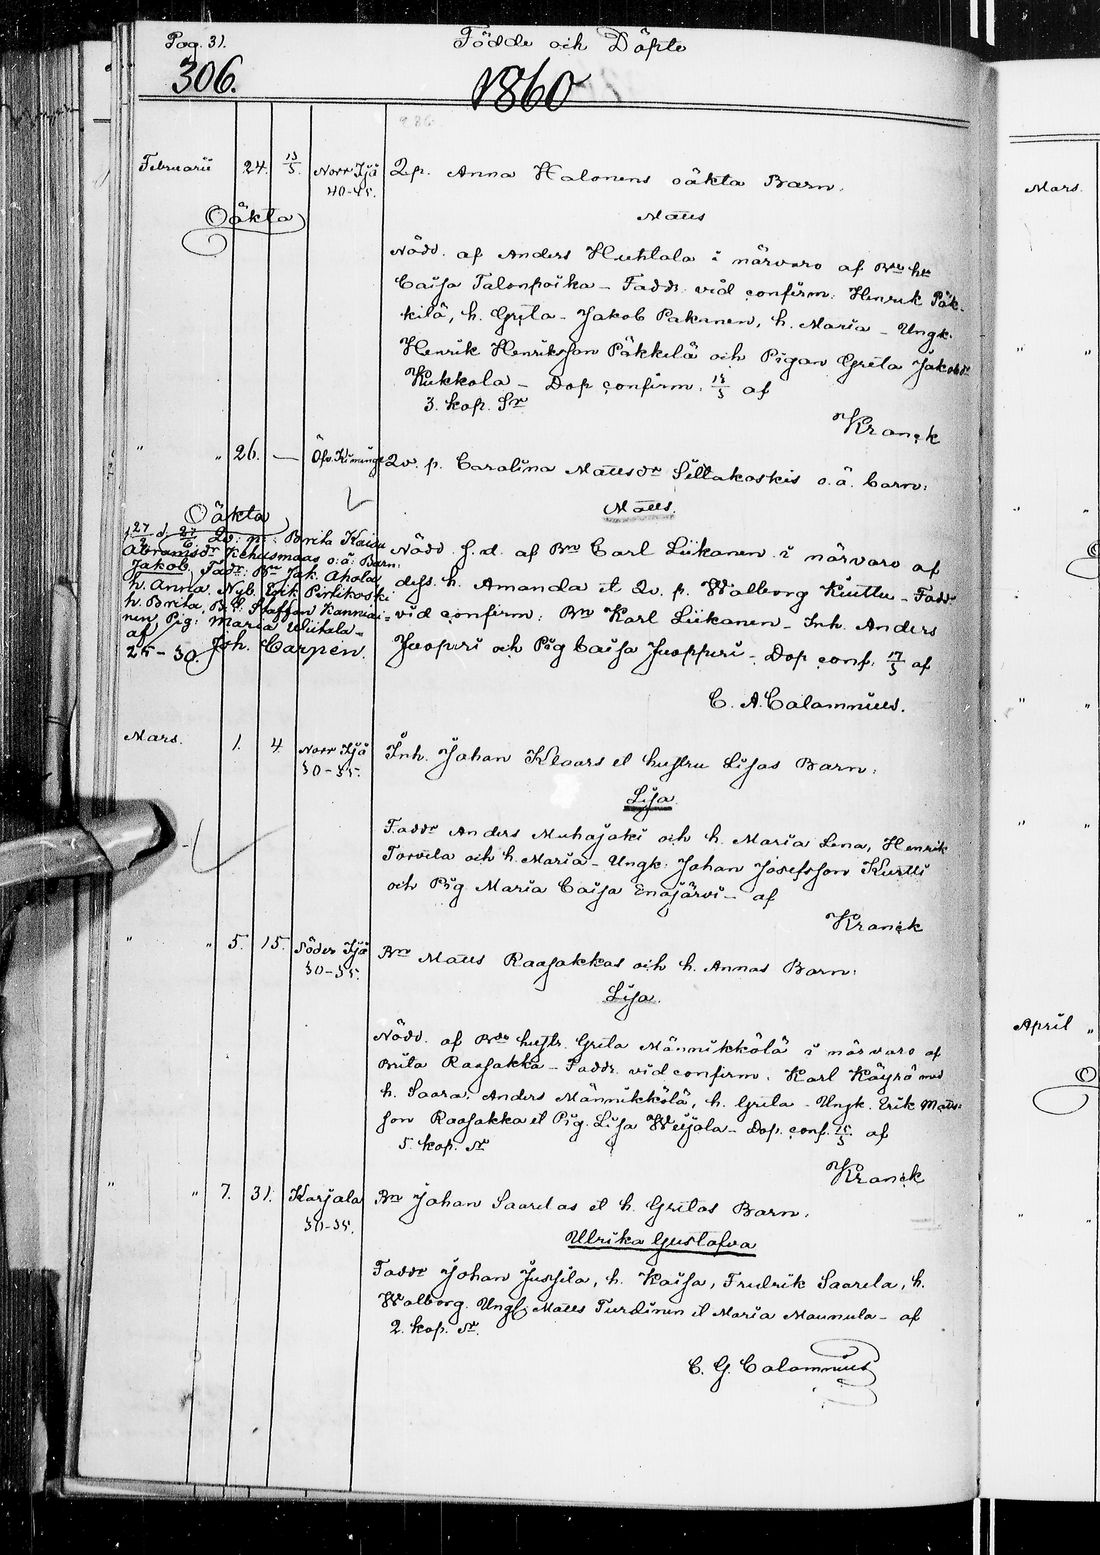 Pag. 31. Födde och Döpte
306. 1860
Februarii 24. 13/5. Norr Ijä Qp. Anna Halonens oäkta Barn.
40-45.
Oäkta Matts
Nödd. af Anders Huhtala i närvaro af Bdn hr
Caisa Talonpoika - Faddr vid confirm: Henrik Päk-
kilä, h. Greta - Jakob Pakanen, h. Maria - Ungk.
Henrik Henriksson Päkkilä och Pigan Greta Jakobdr
Kukkola - Dop confirm. 13/5 af
3. kop. Sr
Kranck
" " 26. — Öfv. Kiminge Qv. p. Carolina Mattsdr Siltakoskis o.ä. barn:
Matts.
Oäkta
f. 27/2 d. 27/6 Qv: p: Brita Kaisa
Abramsdr Kehusmaas o.ä. Barn:
Jakob. Fadr: Bn Jak. Ahola,
h. Anna, Nyb. Erik Pirtikoski
h. Brita, Dr. Staffan Kanniai-
nen Pig: Maria Wiitala -
af Joh. Carpén.
25-30.
Nödd. s.d. af Bn Carl Liikanen i närvaro af
dess h. Amanda et Qv. p. Walborg Kuittu - Faddr
vid confirm: Bn Karl Liikanen - Inh. Anders
Juopuri och Pig Caisa Juoppuri - Dop conf: 17/5 af
C. A. Calamnius.
Mars. 1. 4. Norr Ijä Inh. Johan Klaars et hustru Lisas Barn:
30-35.
Lisa.
Faddr Anders Muhajoki och h. Maria Lena, Henrik
Torvela och h. Maria - Ungk. Johan Josefsson Kurtti
och Pig Maria Caisa Enojärvi - af
Kranck
" " 5. 15. Söder Ijä Bn Matts Raasakkas och h. Annas Barn:
30-35.
Lisa.
Nödd. af Bde hustr. Greta Männikkölä i närvaro af
Brita Raasakka - Faddr. vid confirm. Karl Käyrä med
h. Saara, Anders Männikkölä, h. Greta - Ungk. Erik Matts-
son Raasakka et Pig. Lisa Weijola - Dop. conf. 15/3 af
5. kop. Sr
Kranck
" " 7. 31. Karjala Bn Johan Saarelas et h. Gretas Barn.
30-35.
Ulrika Gustafva
Faddr Johan Jussila, h. Kaisa, Fredrik Saarela, h.
Walborg. Ungk. Matts Turdinen et Maria Maunula - af
2. kop. Sr.
C. G. Calamnius
Mars.
April "